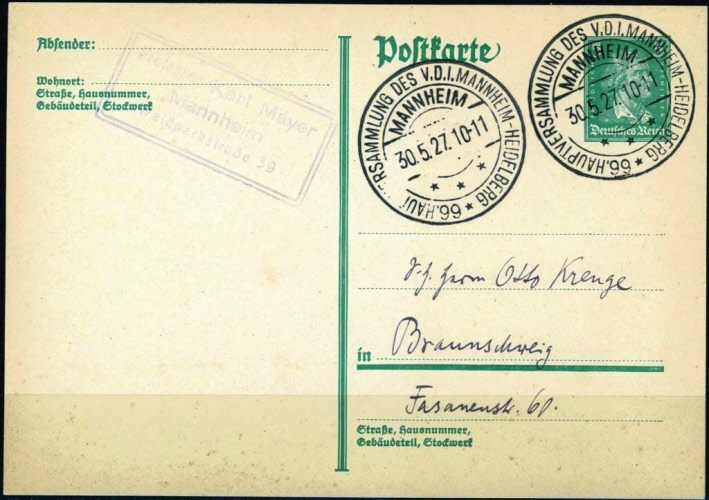 Absender:
Wohnort:
Straße, Hausnummer,
Gebäudeteil, Stockwerk
Karl Mayer
Mannheim
39
Postkarte
RSAMMLUNG DES V.D.I. MANNHEIM-HEIDELBERG * 66. HAU
MANNHEIM
30.5.27. 10-11
* * *
66. HAUPTVERSAMMLUNG DES V.D.I. MANNHEIM-HEIDELBERG *
MANNHEIM
30.5.27. 10-11
* * *
Deutsches Reich
Herrn Otto Krenge
in Braunschweig
Fasanenstr. 60.
Straße, Hausnummer,
Gebäudeteil, Stockwerk